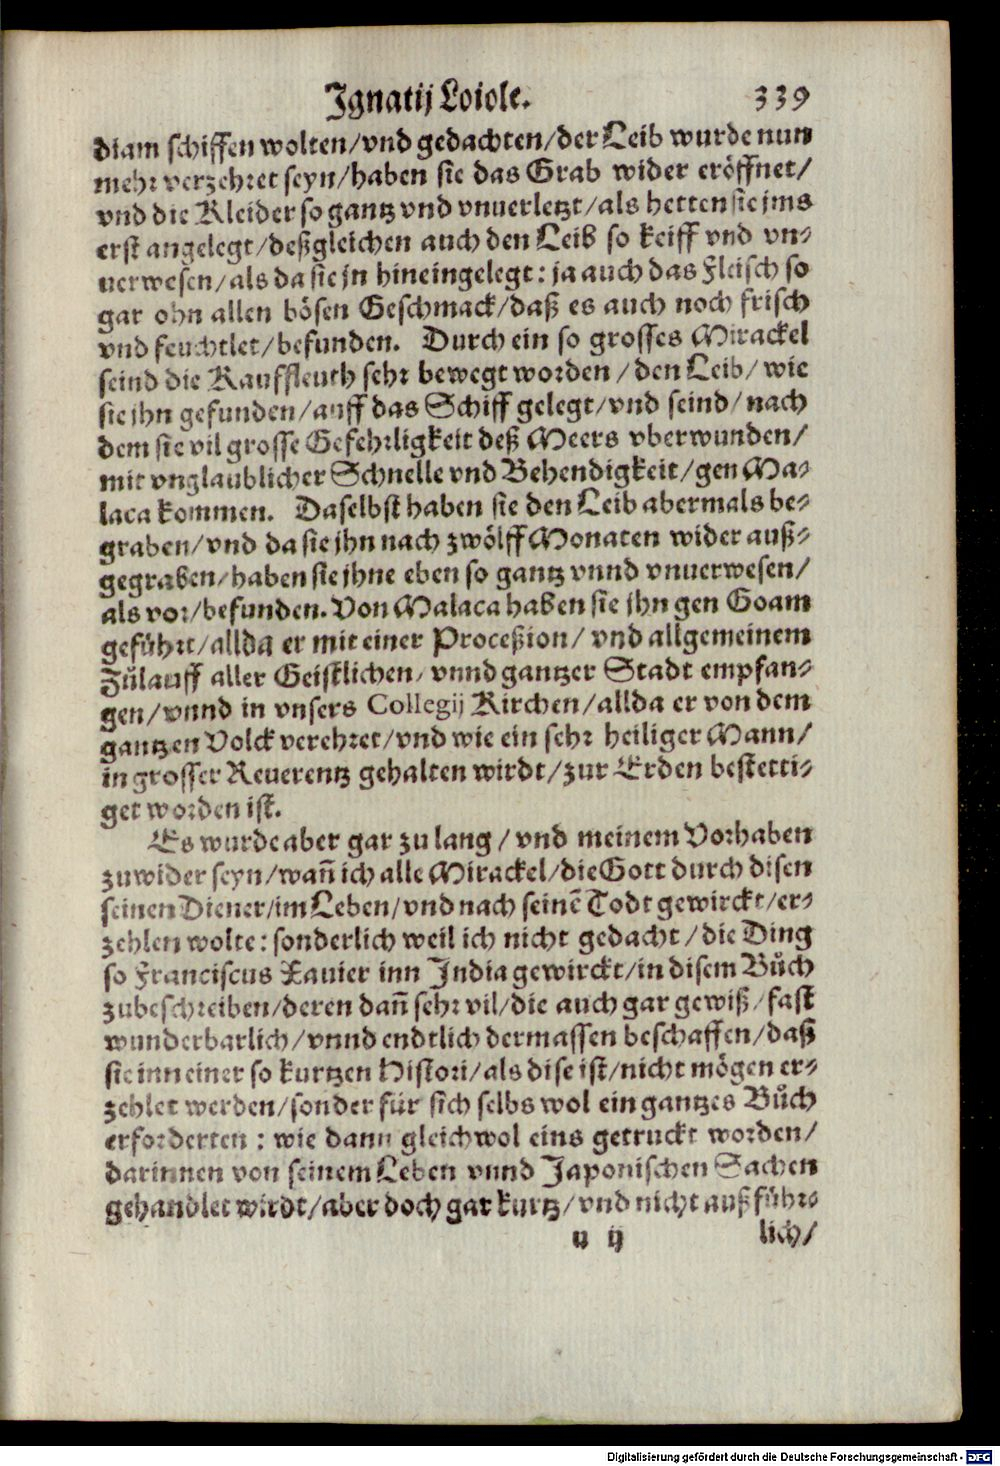 Ignatij Loiole. 339
diam schiffen wolten/vnd gedachten/der Leib wurde nun
mehr verzehret seyn/haben sie das Grab wider eröffnet/
vnd die Kleider so gantz vnd vnuerletzt/als hetten sie jms
erst angelegt/deßgleichen auch den Leib so keiff vnd vn-
uerwesen/als da sie jn hineingelegt: ja auch das Fleisch so
gar ohn allen bösen Geschmack/daß es auch noch frisch
vnd feuchtlet/befunden. Durch ein so grosses Mirackel
seind die Kauffleuth sehr bewegt worden/den Leib/wie
sie jhn gefunden/auff das Schiff gelegt/vnd seind/nach
dem sie vil grosse Gefehrligkeit deß Meers vberwunden/
mit vnglaublicher Schnelle vnd Behendigkeit/gen Ma-
laca kommen. Daselbst haben sie den Leib abermals be-
graben/vnd da sie jhn nach zwölff Monaten wider auß-
gegraben/haben sie jhne eben so gantz vnnd vnuerwesen/
als vor/befunden. Von Malaca haben sie jhn gen Goam
geführt/allda er mit einer Proceßion/vnd allgemeinem
Zůlauff aller Geistlichen/vnnd gantzer Stadt empfan-
gen/vnnd in vnsers Collegij Kirchen/allda er von dem
gantzen Volck verehret/vnd wie ein sehr heiliger Mann/
in grosser Reuerentz gehalten wirdt/zur Erden bestetti-
get worden ist.
Es wurde aber gar zu lang/vnd meinem Vorhaben
zuwider seyn/wañ ich alle Mirackel/die Gott durch disen
seinen Diener/im Leben/vnd nach seinẽ Todt gewirckt/er-
zehlen wolte: sonderlich weil ich nicht gedacht/die Ding
so Franciscus Xauier inn India gewirckt/in disem Bůch
zubeschreiben/deren dañ sehr vil/die auch gar gewiß/fast
wunderbarlich/vnnd endtlich dermassen beschaffen/daß
sie inn einer so kurtzen Histori/als dise ist/nicht mögen er-
zehlet werden/sonder für sich selbs wol ein gantzes Bůch
erforderten: wie dann gleichwol eins getruckt worden/
darinnen von seinem Leben vnnd Japonischen Sachen
gehandlet wirdt/aber doch gar kurtz/vnd nicht außführ-
u ij lich/
Digitalisierung gefördert durch die Deutsche Forschungsgemeinschaft - DFG